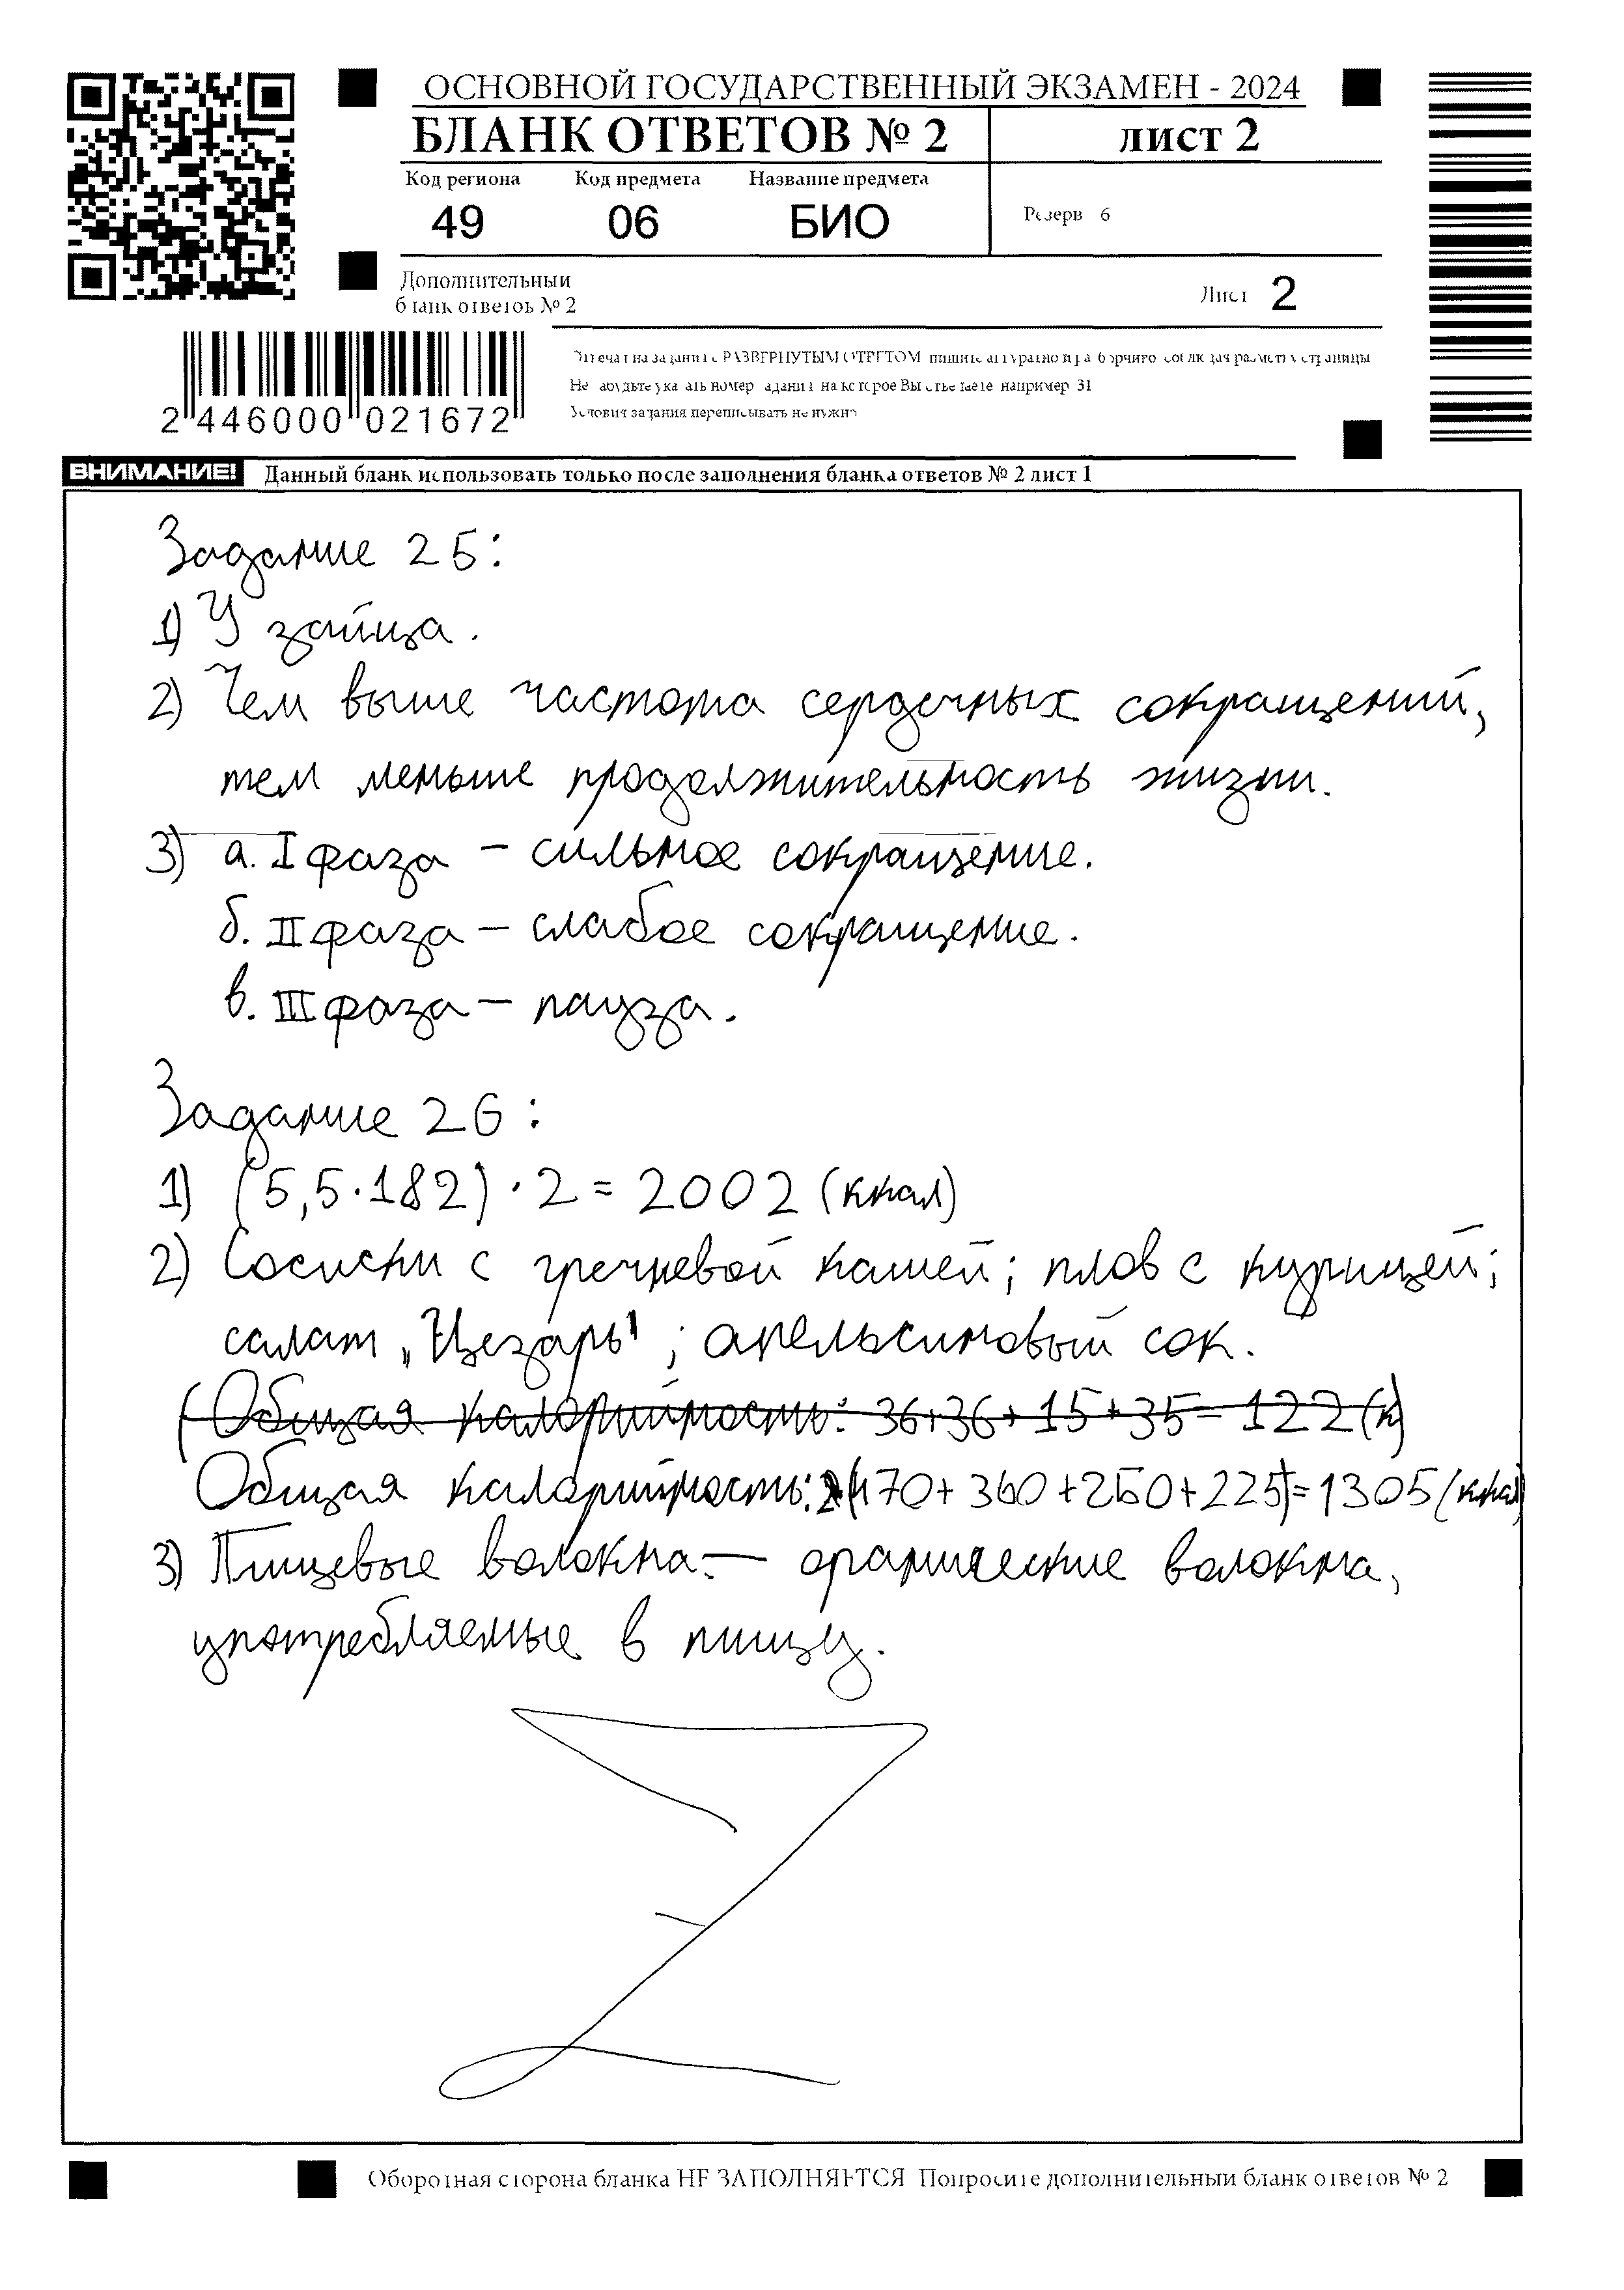 ОСНОВНОЙ ГОСУДАРСТВЕННЫЙ ЭКЗАМЕН - 2024
БЛАНК ОТВЕТОВ № 2 ЛИСТ 2
Код региона Код предмета Название предмета
49 06 БИО
Резерв 6
Дополнительный
бланк ответов № 2
Лист 2
РАЗВЕРНУТЫМ ОТВЕТОМ
номер например 31
Условия задания переписывать не нужно
2 446000 021672
ВНИМАНИЕ! Данный бланк использовать только после заполнения бланка ответов № 2 лист 1
Задание 25:
1) У зайца.
2) Чем выше частота сердечных сокращений,
тем меньше продолжительность жизни.
3) а. I фаза – сильное сокращение.
б. II фаза – слабое сокращение.
в. III фаза – пауза.
Задание 26:
1) (5,5·182)·2=2002 (ккал)
2) Сосиски с гречневой кашей; плов с курицей;
салат „Цезарь"; апельсиновый сок.
(Общая калорийность: 36+36+15+35=122(к)
Общая калорийность: (470+360+250+225)=1305(ккал)
3) Пищевые волокна – органические волокна,
употребляемые в пищу.
Оборотная сторона бланка НЕ ЗАПОЛНЯЕТСЯ Попросите дополнительный бланк ответов № 2